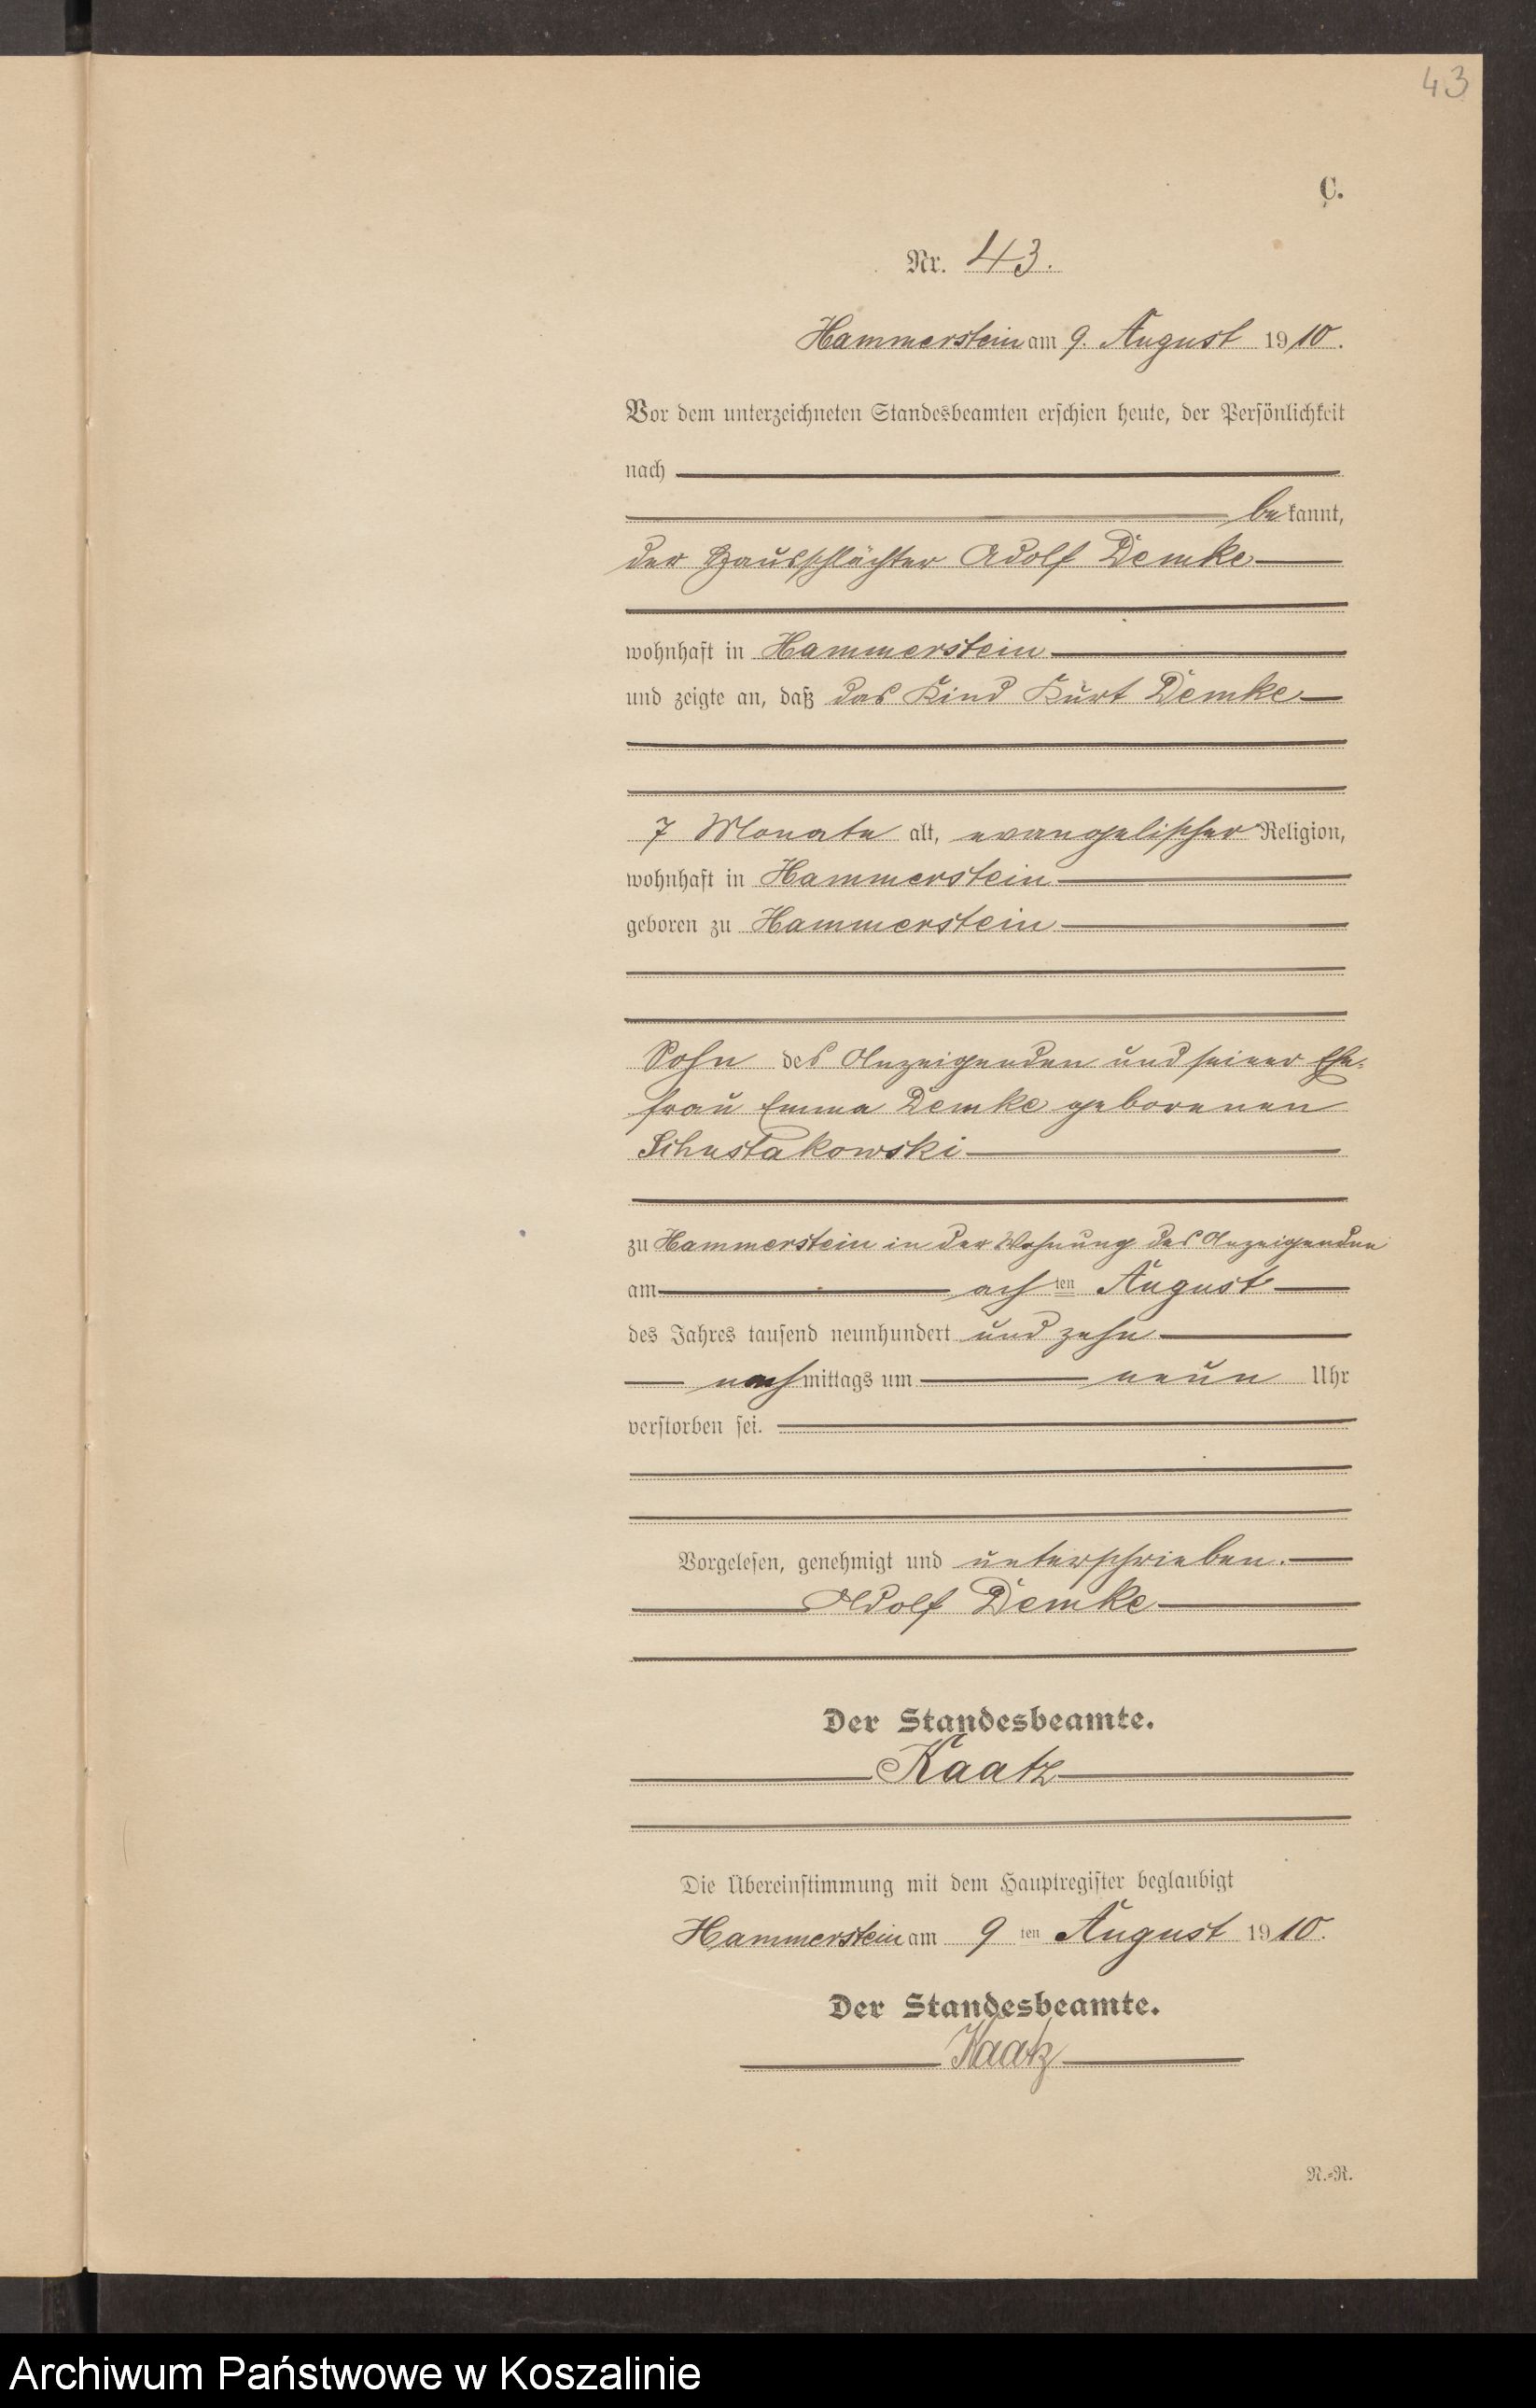 43
C.
Nr. 43.
Hammerstein am 9. August 1910.
Vor dem unterzeichneten Standesbeamten erschien heute, der Persönlichkeit
nach
bekannt,
der Hausschlächter Adolf Demke
wohnhaft in Hammerstein
und zeigte an, daß das Kind Kurt Demke
7 Monate alt, evangelischer Religion,
wohnhaft in Hammerstein
geboren zu Hammerstein
Sohn des Anzeigenden und seiner Ehe-
frau Emma Demke geborenen
Schustakowski
zu Hammerstein in der Wohnung des Anzeigenden
am achten August
des Jahres tausend neunhundert und zehn
nachmittags um neun Uhr
verstorben sei.
Vorgelesen, genehmigt und unterschrieben.
Adolf Demke
Der Standesbeamte.
Kaatz
Die Übereinstimmung mit dem Hauptregister beglaubigt
Hammerstein am 9ten August 1910.
Der Standesbeamte.
Kaatz
N.-R.
Archiwum Państwowe w Koszalinie